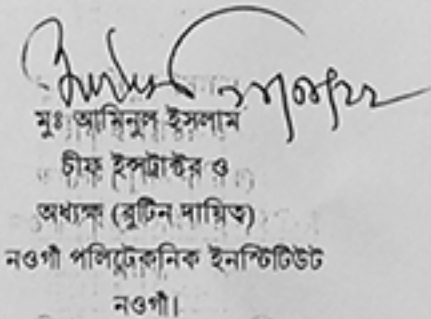 মুঃ আমিনুল ইসলাম
চীফ ইন্সট্রাক্টর ও
অধ্যক্ষ (রুটিন দায়িত্ব)
নওগাঁ পলিটেকনিক ইনস্টিটিউট
নওগাঁ।